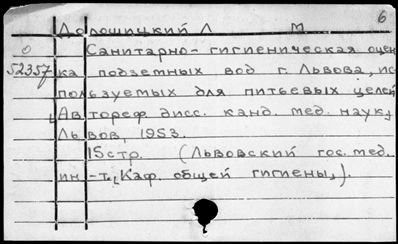 6
Дорошицкий Л М
0 Санитарно-гигиеническая оцен
52357 ка подземных вод г. Львова, ис
пользуемых для питьевых целей
Автореф дисс. канд. мед. наук,
Львов, 1953.
15стр. (Львовский гос. мед.
ин-т, Каф. общей гигиены,).